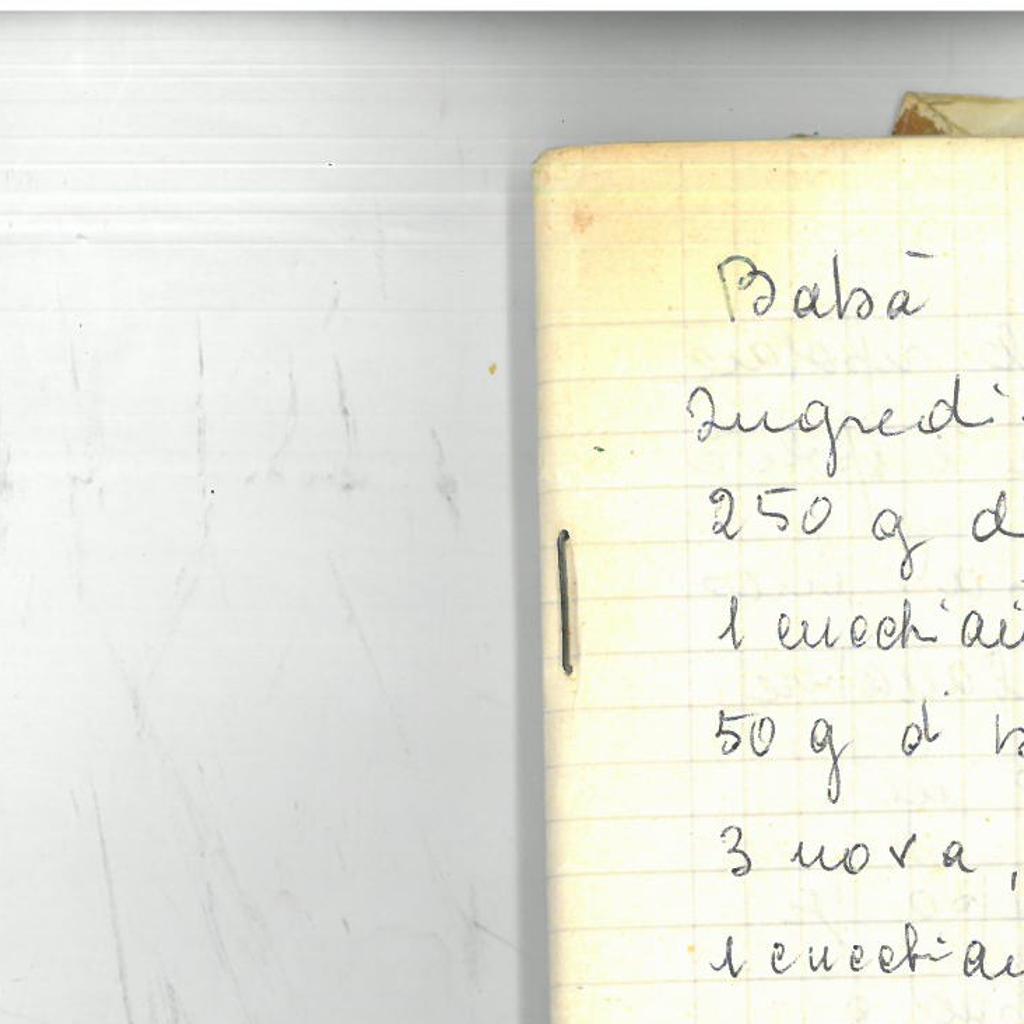 Babà
Ingredi
250 g d
1 cucchiai
50 g di b
3 uova,
1 cucchiai